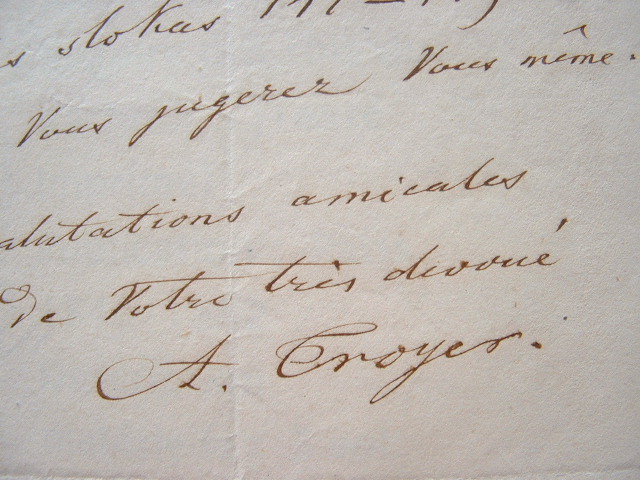 slokas
Vous jugerez Vous même.
alutations amicales
de Votre très dévoué
A. Troyer.